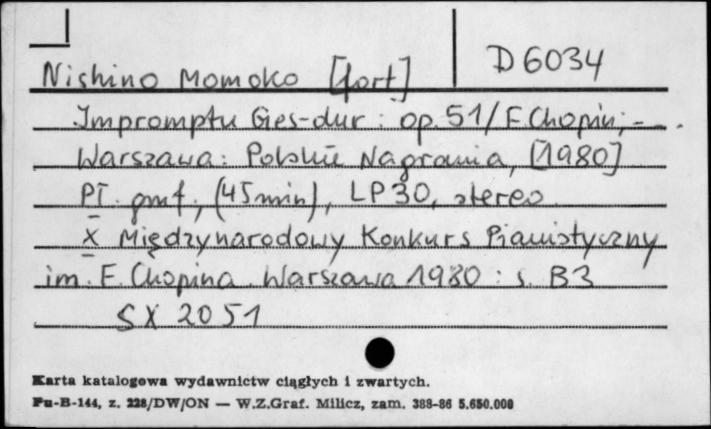 D 6034
Nishino Momoko [fort]
Impromptu Ges-dur : op. 51 / F. Chopin; - .
Warszawa : Polskie Nagrania, [1980]
Pł. gmf., (45 min), LP 30, stereo
X Międzynarodowy Konkurs Pianistyczny
im. F. Chopina. Warszawa 1980 : s. B3
SX 2051
Karta katalogowa wydawnictw ciągłych i zwartych.
Pu-B-144, z. 228/DW/ON — W.Z.Graf. Milicz, zam. 388-86 5.650.000